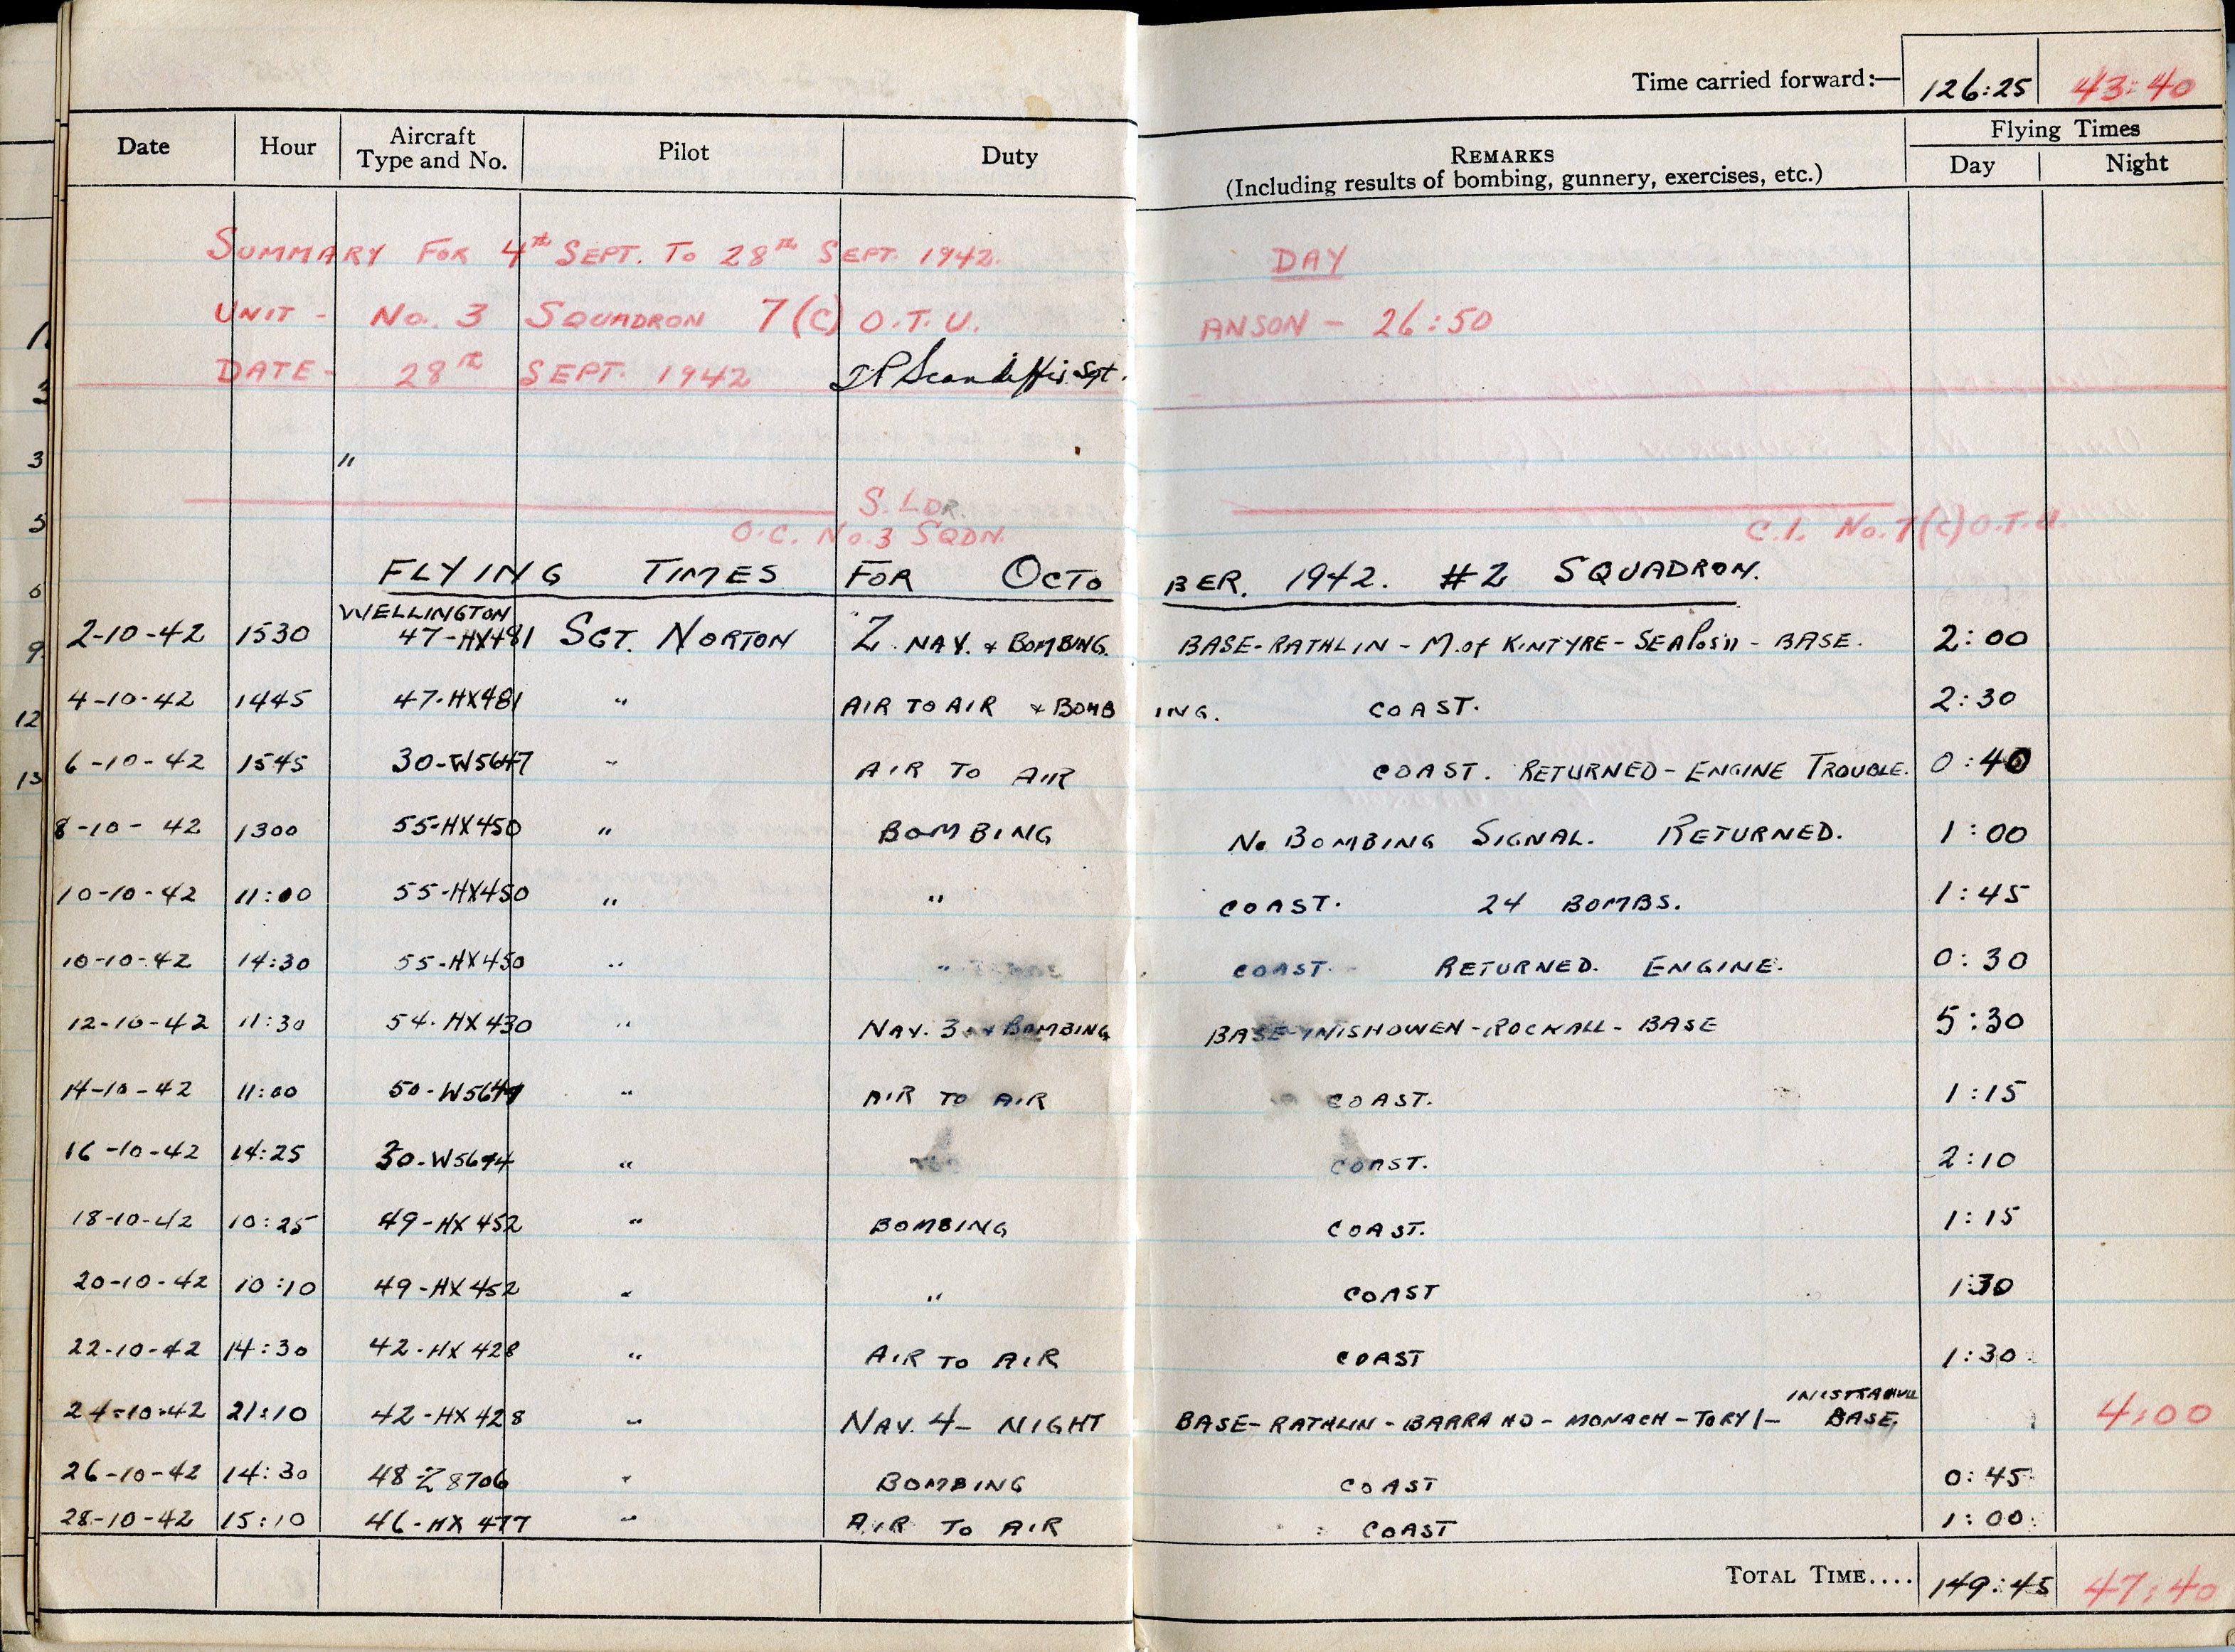 Time carried forward:— 126:25 43:40
Date Hour Aircraft Type and No. Pilot Duty REMARKS (Including results of bombing, gunnery, exercises, etc.) Flying Times Day Night
SUMMARY FOR 4th SEPT. TO 28th SEPT. 1942. DAY
UNIT - No. 3 SQUADRON 7(C) O.T.U. ANSON - 26:50
DATE - 28th SEPT. 1942 Sgt.
"
S. LDR.
O.C. No.3 SQDN. C.I. No.7(C) O.T.U.
FLYING TIMES FOR OCTOBER. 1942. #2 SQUADRON.
WELLINGTON
2-10-42 1530 47-HX481 SGT. NORTON Z NAV. & BOMBING. BASE-RATHLIN - M.of KINTYRE - SEA Pos'n - BASE. 2:00
4-10-42 1445 47-HX481 " AIR TO AIR & BOMBING. COAST. 2:30
6-10-42 1545 30-W5647 " AIR TO AIR COAST. RETURNED - ENGINE TROUBLE. 0:40
8-10-42 1300 55-HX450 " BOMBING No BOMBING SIGNAL. RETURNED. 1:00
10-10-42 11:00 55-HX450 " " COAST. 24 BOMBS. 1:45
10-10-42 14:30 55-HX450 " " COAST. RETURNED. ENGINE. 0:30
12-10-42 11:30 54-HX430 " NAV. 3 & BOMBING BASE-INISHOWEN-ROCKALL-BASE 5:30
14-10-42 11:00 " AIR TO AIR COAST. 1:15
16-10-42 14:25 30-W5674 " COAST. 2:10
18-10-42 10:25 49-HX452 " BOMBING COAST. 1:15
20-10-42 10:10 49-HX452 " " COAST 1:30
22-10-42 14:30 42-HX428 " AIR TO AIR COAST 1:30
24-10-42 21:10 42-HX428 " NAV. 4 - NIGHT BASE-RATHLIN-BARRA HD-MONACH-TORY/- BASE 4:00
26-10-42 14:30 48-Z8706 " BOMBING COAST 0:45
28-10-42 15:10 46-HX477 " AIR TO AIR COAST 1:00
TOTAL TIME.... 149:45 47:40